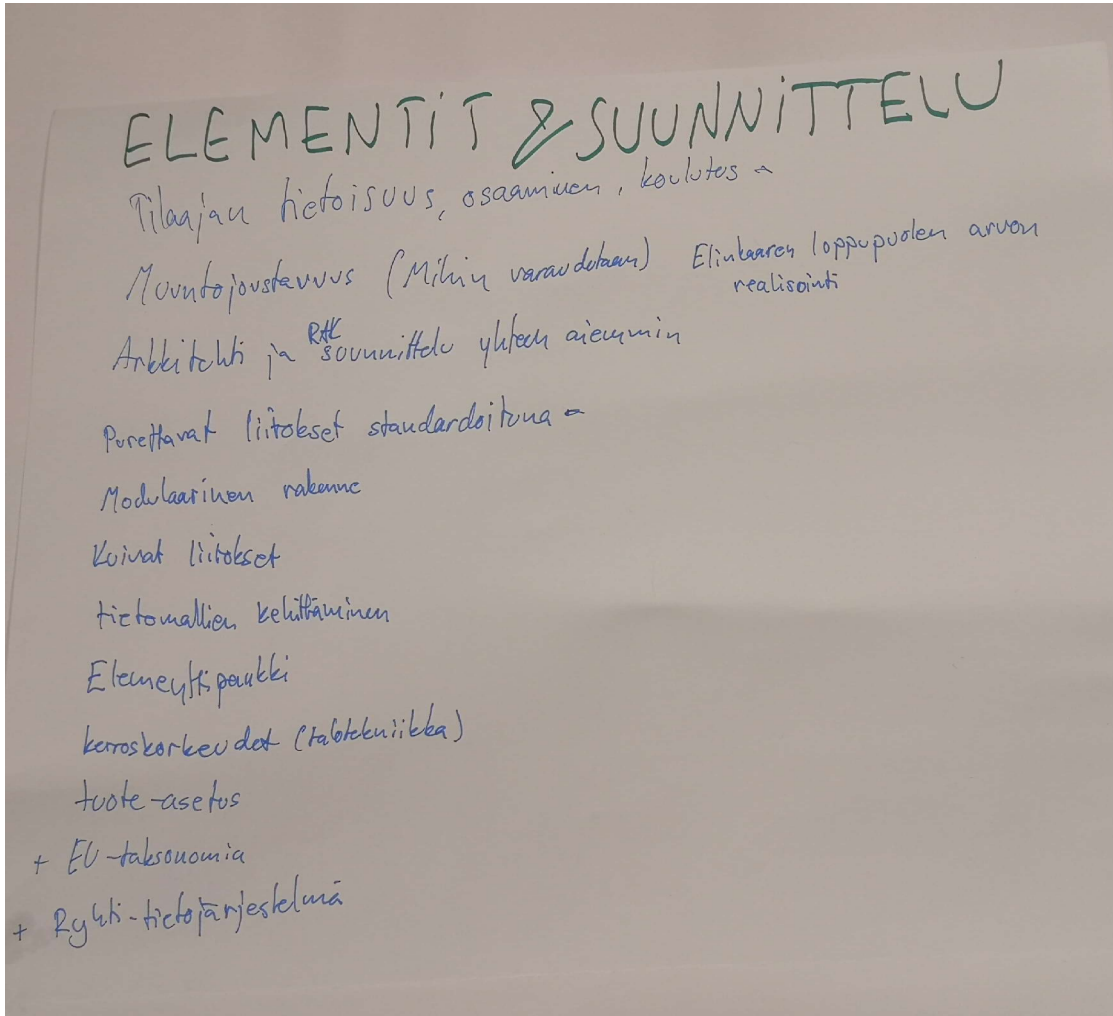 ELEMENTIT & SUUNNITTELU
Tilaajan tietoisuus, osaaminen, koulutus -
Muuntojoustavuus (Mihin varaudutaan) Elinkaaren loppupuolen arvon
realisointi
Arkkitehti ja RAK suunnittelu yhteen aiemmin
Purettavat liitokset standardoituna -
Modulaarinen rakenne
Kuivat liitokset
tietomallien kehittäminen
Elementtipankki
kerroskorkeudet (talotekniikka)
tuote-asetus
+ EU-taksonomia
+ Ryhti-tietojärjestelmä